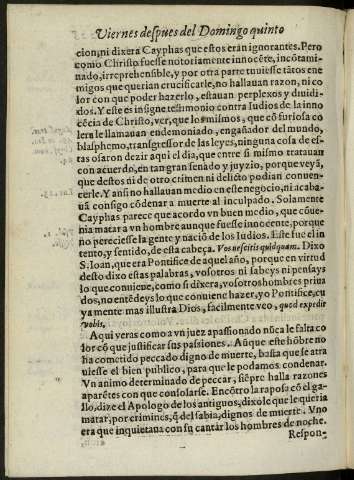 Viernes despues del Domingo quinto
cion, ni dixera Cayphas que estos eran ignorantes. Pero
como Christo fuesse notoriamente innocẽte, incõtami-
nado, irreprehensible, y por otra parte tuuiesse tãtos ene
migos que querian crucificarle, no hallauan razon, ni co
lor con que poder hazerlo, estauan perplexos y diuidi-
dos. Y este es insigne testimonio contra Iudios de la inno
cẽcia de Christo, ver, que los mismos, que cõ furiosa co
lera le llamauan endemoniado, engañador del mundo,
blasphemo, transgressor de las leyes, ninguna cosa de es-
tas osaron dezir aqui el dia, que entre si mismo tratauan
con acuerdo, en tan gran senado y juyzio, porque veyã,
que destos ni de otro crimen ni delicto podian conuen-
cerle. Y ansi no hallauan medio en este negocio, ni acaba-
uã consigo cõdenar a muerte al inculpado. Solamente
Cayphas parece que acordo vn buen medio, que cõue-
nia matar a vn hombre aunque fuesse innocente, porque
no pereciesse la gente y naciõ de los Iudios. Este fue el in
tento, y sentido, de esta cabeça. Vos nescitis quidquam. Dixo
S. Ioan, que era Pontifice de aquel año, porque en virtud
desto dixo estas palabras, vosotros ni sabeys ni pensays
lo que conuiene, como si dixera, vosotros hombres priua
dos, no entẽdeys lo que conuiene hazer, yo Pontifice, cu
ya mente mas illustra Dios, facilmente veo, quod expedit
vobis.
Aqui veras como a vn juez apassionado nũca le falta co
lor cõ que justificar sus passiones. Aũque este hõbre no
ha cometido peccado digno de muerte, basta que se atra
uiesse el bien publico, para que le podamos condenar.
Vn animo determinado de peccar, siẽpre halla razones
aparẽtes con que consolarse. Encõtro la raposa cõ el ga-
llo, dize el Apologo de los antiguos, dixole que le queria
matar, por crimines, q̃ del sabia, dignos de muerte. Vno
era que inquietaua con su cantar los hombres de noche.
Respon-